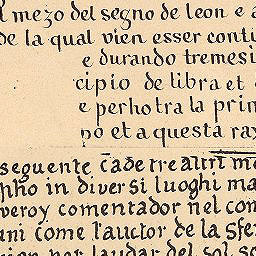 mezo del segno de leon e a
de la qual vien esser conti
e durando tremesi
cipio de libra et
e perho tra la prin
no et a questa ra
seguente cade tre altri me
pho in diversi luoghi ma
veroy comentador nel com
ani come l'auctor de la sfe
laudar del sol